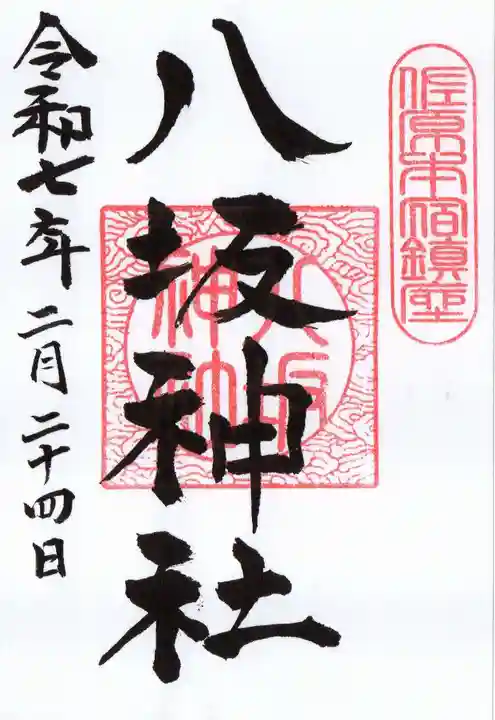 佐原本宿鎮座
八坂神社
八坂神社
令和七年二月二十四日